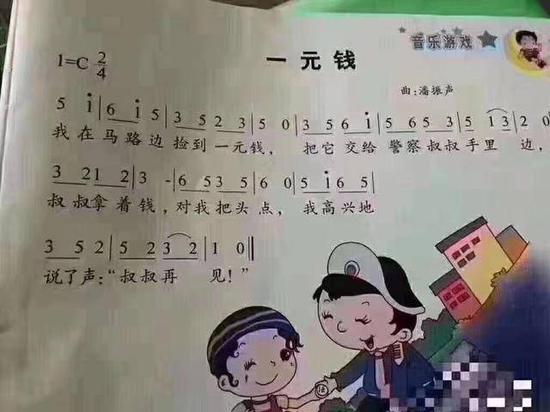 音乐游戏
一元钱
1=C 2/4
曲:潘振声
5 i|6 i 5|3 5 2 3|5 0|3 5 6 i|5 3 5|5 13|2 0|
我在马路边捡到一元钱,把它交给警察叔叔手里边,
3 21 2|3 -|6 5 3|5 0|5 i 6 5|
叔叔拿着钱,对我把头点,我高兴地
3 5 2|5 2 3 2|1 0‖
说了声:“叔叔再见!”